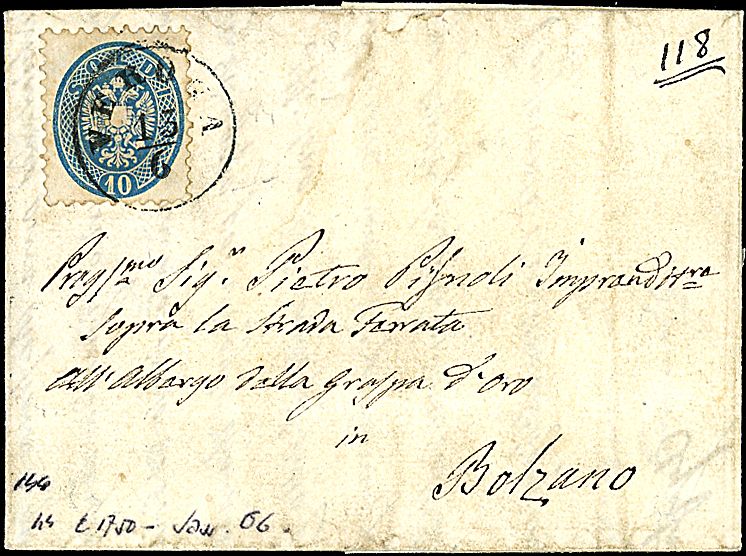 118
SOLDI
10
VERONA
13
6
Preg.mo Sig.r Pietro Pisnoli Imprenditore
sopra la Strada Ferrata
all'Albergo della Graspa d'oro
in
Bolzano